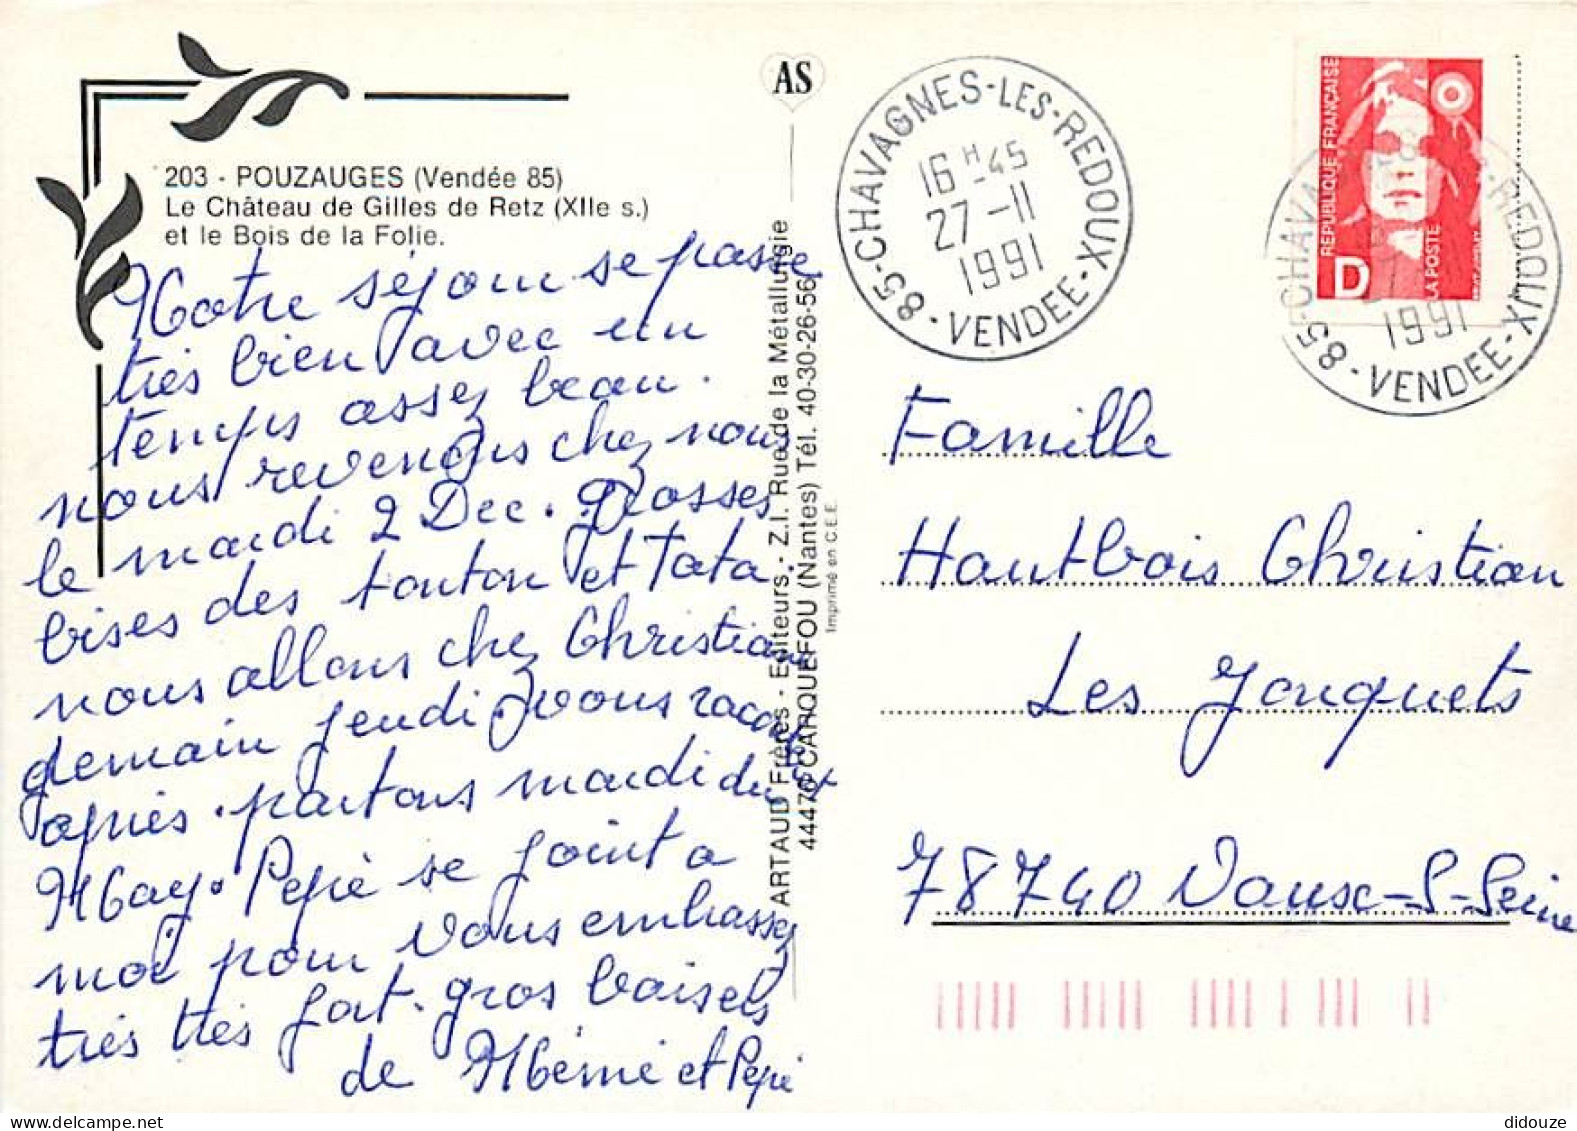 203 - POUZAUGES (Vendée 85)
Le Château de Gilles de Retz (XIIe s.)
et le Bois de la Folie.
Notre séjour se passe
très bien avec un
temps assez beau.
nous revenons chez nous
le mardi 2 Dec. grosses
bises des tonton et Tata.
nous allons chez Christian
demain jeudi. vous raconterait
après. partons mardi du
May. Pépé se joint a
moi pour vous embrasser
très très fort. gros baisers
de Mémé et Pépé
AS
ARTAUD Frères - Editeurs - Z.I. Rue de la Métallurgie
44470 CARQUEFOU (Nantes) Tél. 40-30-26-56
Imprimé en C.E.E.
85-CHAVAGNES-LES-REDOUX
16H-45
27-11
1991
VENDEE
REPUBLIQUE FRANÇAISE
D
LA POSTE
85-CHAVA
S-REDOUX
1991
VENDEE
Famille
Hautbois Christian
Les Jonquets
78740 Vaux-S-Seine
didouze